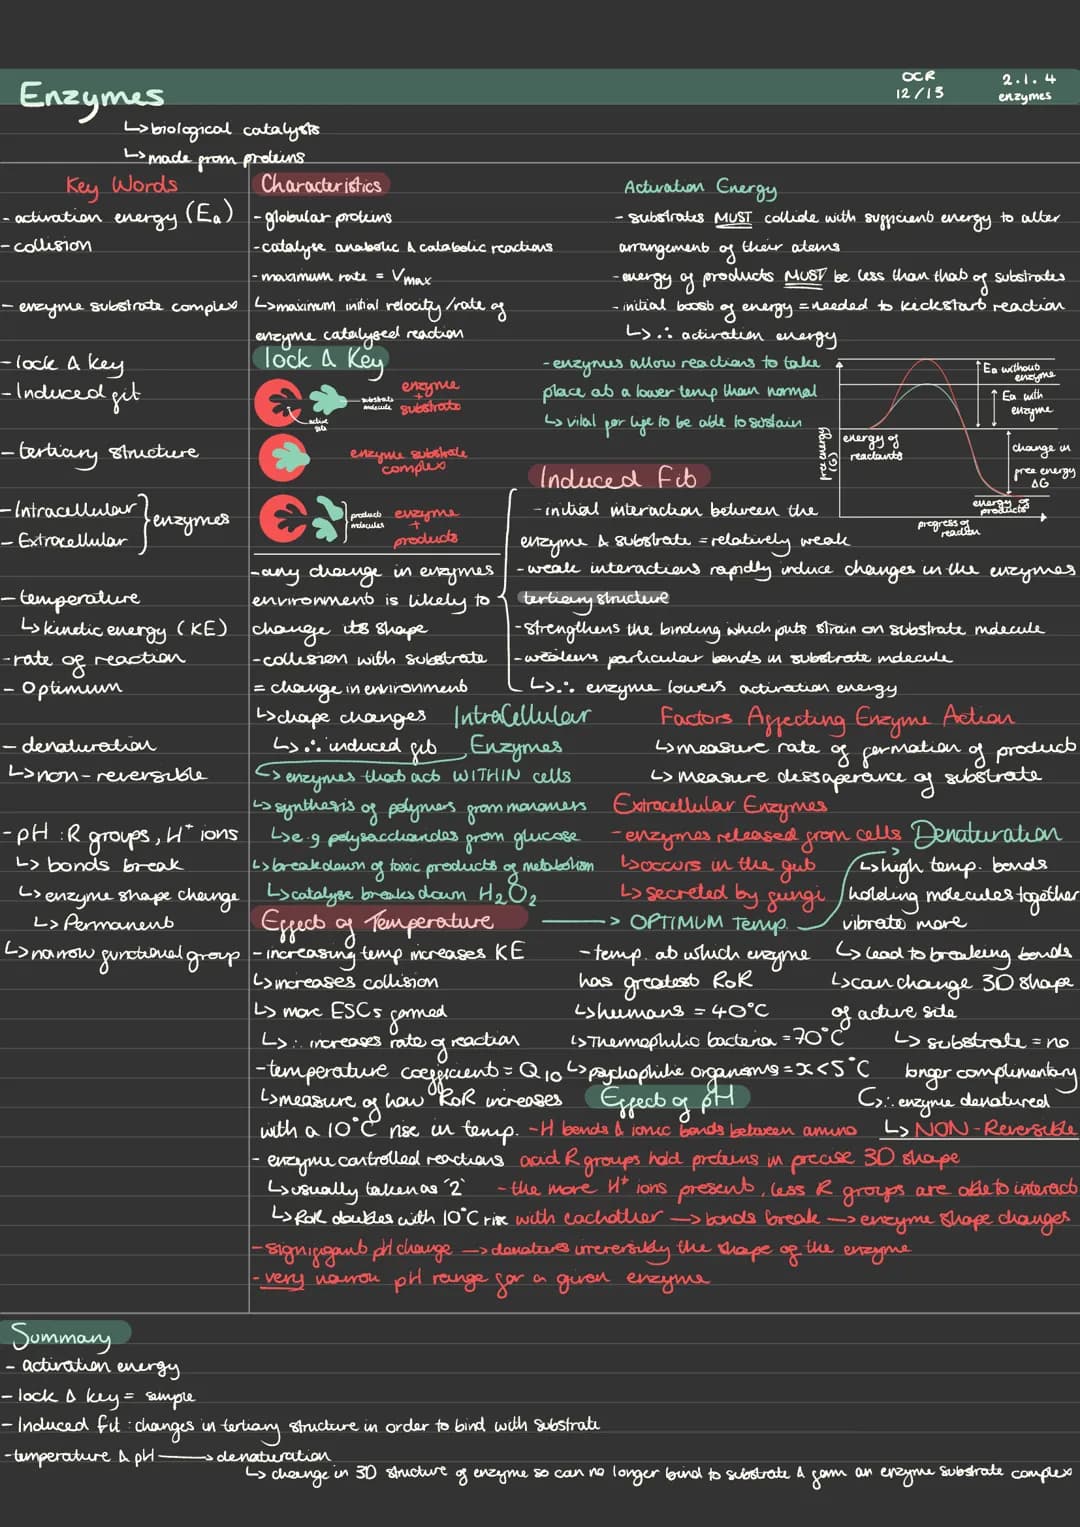 Enzymes
OCR
12/13
2.1.4
enzymes
↳ biological catalysts
↳ made from proteins
Key Words
- activation energy (Ea)
- collision
- enzyme substrate complex
- lock & key
- Induced fit
- tertiary structure
- Intracellular
- Extracellular
} enzymes
- temperature
↳ kinetic energy (KE)
- rate of reaction
- Optimum
- denaturation
↳ non-reversible
- pH : R groups, H⁺ ions
↳ bonds break
↳ enzyme shape change
↳ Permanent
↳ narrow functional group
Characteristics
- globular proteins
- catalyse anabolic & catabolic reactions
- maximum rate = Vmax
↳ maximum initial velocity/rate of
enzyme catalysed reaction
Activation Energy
- substrates MUST collide with sufficient energy to alter
arrangement of their atoms
- energy of products MUST be less than that of substrates
- initial boost of energy = needed to kickstart reaction
↳ ∴ activation energy
- enzymes allow reactions to take
place at a lower temp than normal
↳ vital for life to be able to sustain
free energy (G)
energy of
reactants
Ea without
enzyme
Ea with
enzyme
change in
free energy
ΔG
energy of
products
progress of
reaction
lock & Key
active
site
substrate
molecule
enzyme
+
substrate
enzyme substrate
complex
product
molecules
enzyme
+
products
- any change in enzymes
environment is likely to
change its shape
- collision with substrate
= change in environment
↳ shape changes
↳ ∴ induced fit
Induced Fit
- initial interaction between the
enzyme & substrate = relatively weak
- weak interactions rapidly induce changes in the enzymes
tertiary structure
- strengthens the binding which puts strain on substrate molecule
- weakens particular bonds in substrate molecule
↳ ∴ enzyme lowers activation energy
IntraCellular
Enzymes
↳ enzymes that act WITHIN cells
↳ synthesis of polymers from monomers
↳ e.g polysaccharides from glucose
↳ breakdown of toxic products of metabolism
↳ catalyse breaks down H₂O₂
Factors Affecting Enzyme Action
↳ measure rate of formation of product
↳ measure dessaperance of substrate
Extracellular Enzymes
- enzymes released from cells
↳ occurs in the gut
↳ secreted by fungi
Denaturation
↳ high temp. bonds
holding molecules together
vibrate more
↳ lead to breaking bonds
↳ can change 3D shape
of active site
↳ substrate = no
longer complimentary
↳ ∴ enzyme denatured
↳ NON-Reversible
Effect of Temperature
- increasing temp increases KE
↳ increases collision
↳ more ESCs formed
↳ ∴ increases rate of reaction
- temperature coefficient = Q10
↳ measure of how RoR increases
with a 10°C rise in temp.
- enzyme controlled reactions
↳ usually taken as '2'
↳ RoR doubles with 10°C rise
→ OPTIMUM Temp.
- temp. at which enzyme
has greatest RoR
↳ humans = 40°C
↳ Thermophilic bacteria = 70°C
↳ psychophilic organisms = x<5°C
Effect of pH
- H bonds & ionic bonds between amino
acid R groups hold proteins in precise 3D shape
- the more H⁺ ions present, less R groups are able to interact
with eachother → bonds break → enzyme shape changes
- significant pH change → denatures irreversibly the shape of the enzyme
- very narrow pH range for a given enzyme
Summary
- activation energy
- lock & key = simple
- Induced fit : changes in tertiary structure in order to bind with substrate
- temperature & pH → denaturation
↳ change in 3D structure of enzyme so can no longer bind to substrate & form an enzyme substrate complex